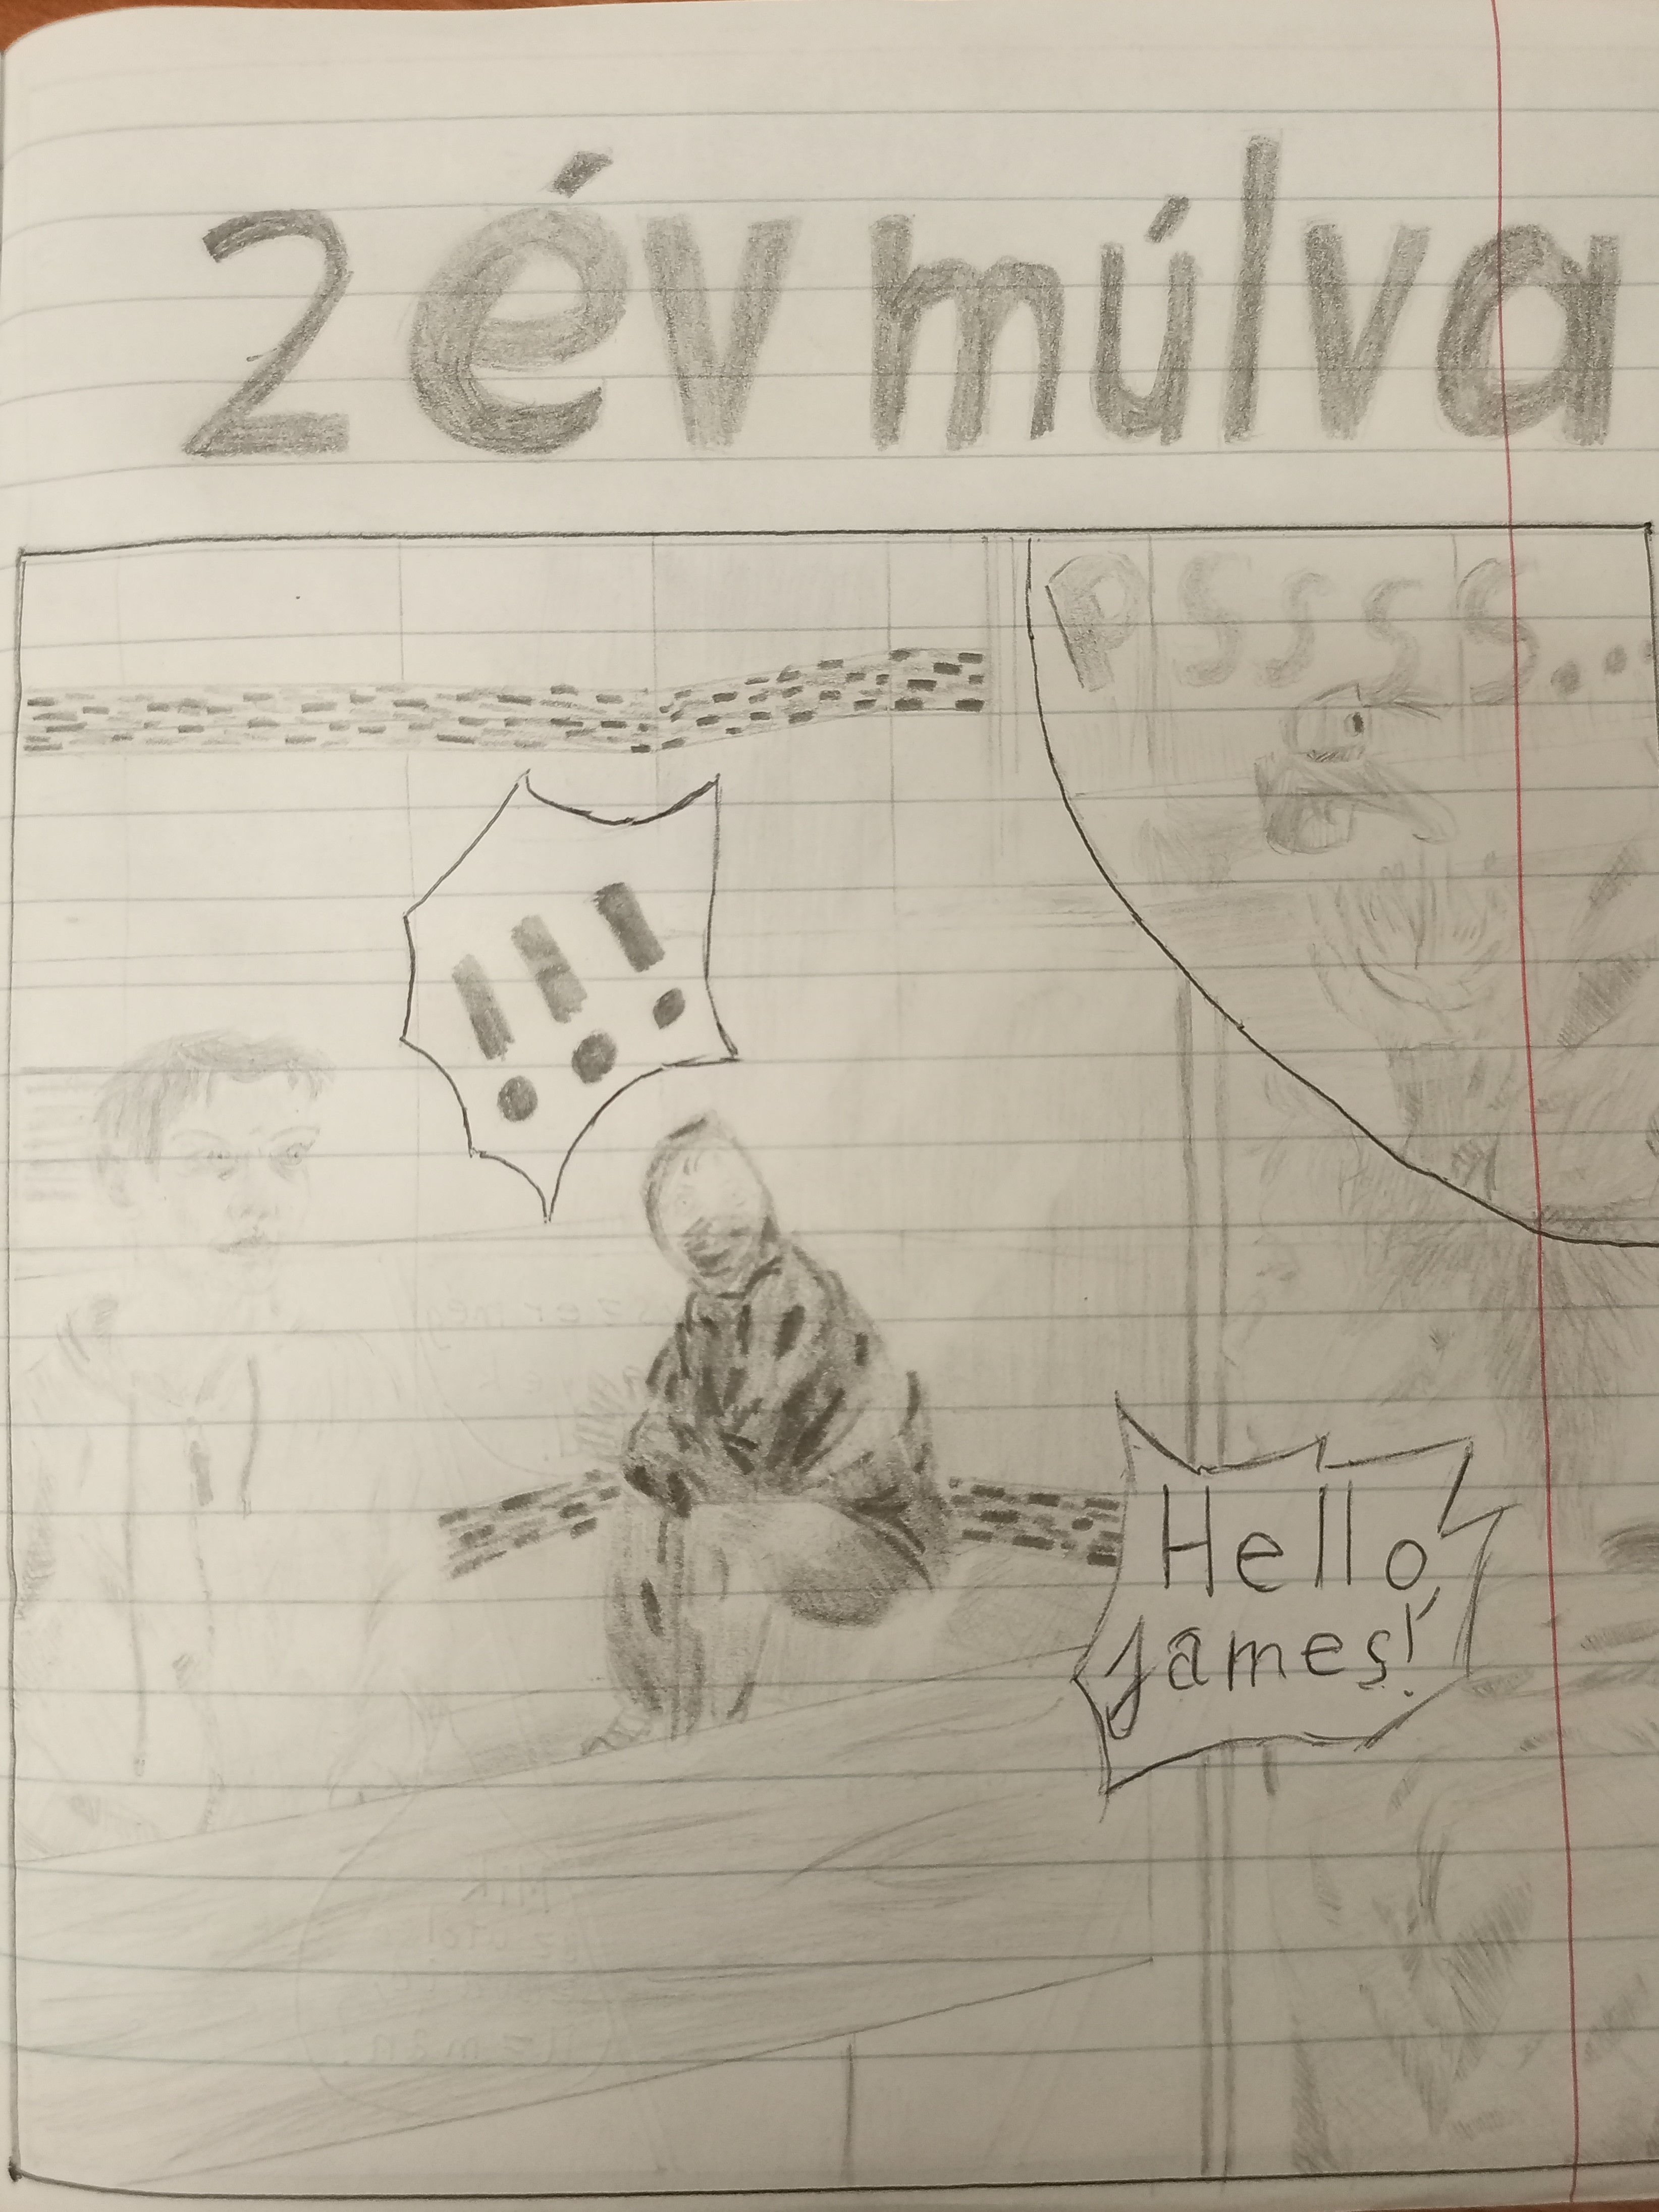 2 év múlva
PSSSS...
!!!
Hello,
James!